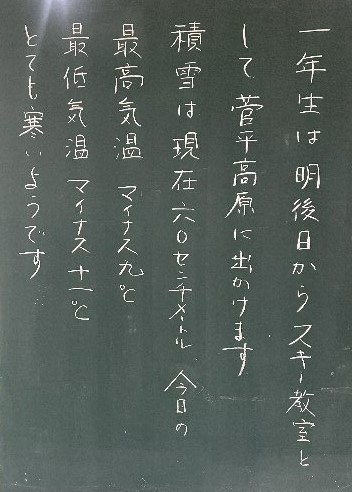 一年生は明後日からスキー教室と
して菅平高原に出かけます
積雪は現在六〇センチメートル、今日の
最高気温 マイナス九℃
最低気温 マイナス十一℃
とても寒いようです